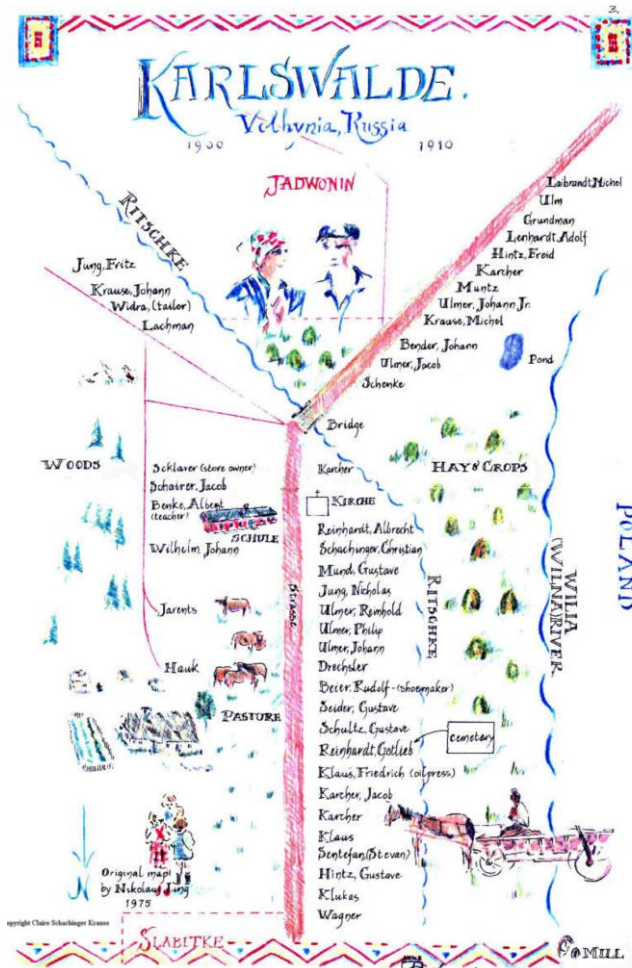 3.
KARLSWALDE.
Volhynia, Russia
1900 1910
JADWONIN
RITSCHKE
Jung, Fritz
Krause, Johann
Widra, (tailor)
Lachman
Laibrandt, Michel
Ulm
Grundman
Lenhardt, Adolf
Hintz, Freid
Karcher
Muntz
Ulmer, Johann Jr.
Krause, Michel
Bender, Johann
Ulmer, Jacob
Schenke
Pond
Bridge
WOODS
Scklarer (store owner)
Schairer, Jacob
Benke, Albert
(teacher)
SCHULE
Wilhelm, Johann
Jarents
Hauk
PASTURE
Strasse
Karcher
KIRCHE
Reinhardt, Albrecht
Schachinger, Christian
Mund, Gustave
Jung, Nicholas
Ulmer, Reinhold
Ulmer, Philip
Ulmer, Johann
Drechsler
Beier, Rudolf - (shoemaker)
Seider, Gustave
Schultz, Gustave
Reinhardt, Gotlieb
Klaus, Friedrich (oilpress)
Karcher, Jacob
Karcher
Klaus
Sentefan (Stevan)
Hintz, Gustave
Klukas
Wagner
HAY & CROPS
RITSCHKE
cemetery
WILIA
(WILNA) RIVER
POLAND
N
Original map
by Nikolaus Jung
1975
opyright Claire Schachinger Krause
SLABITKE
MILL